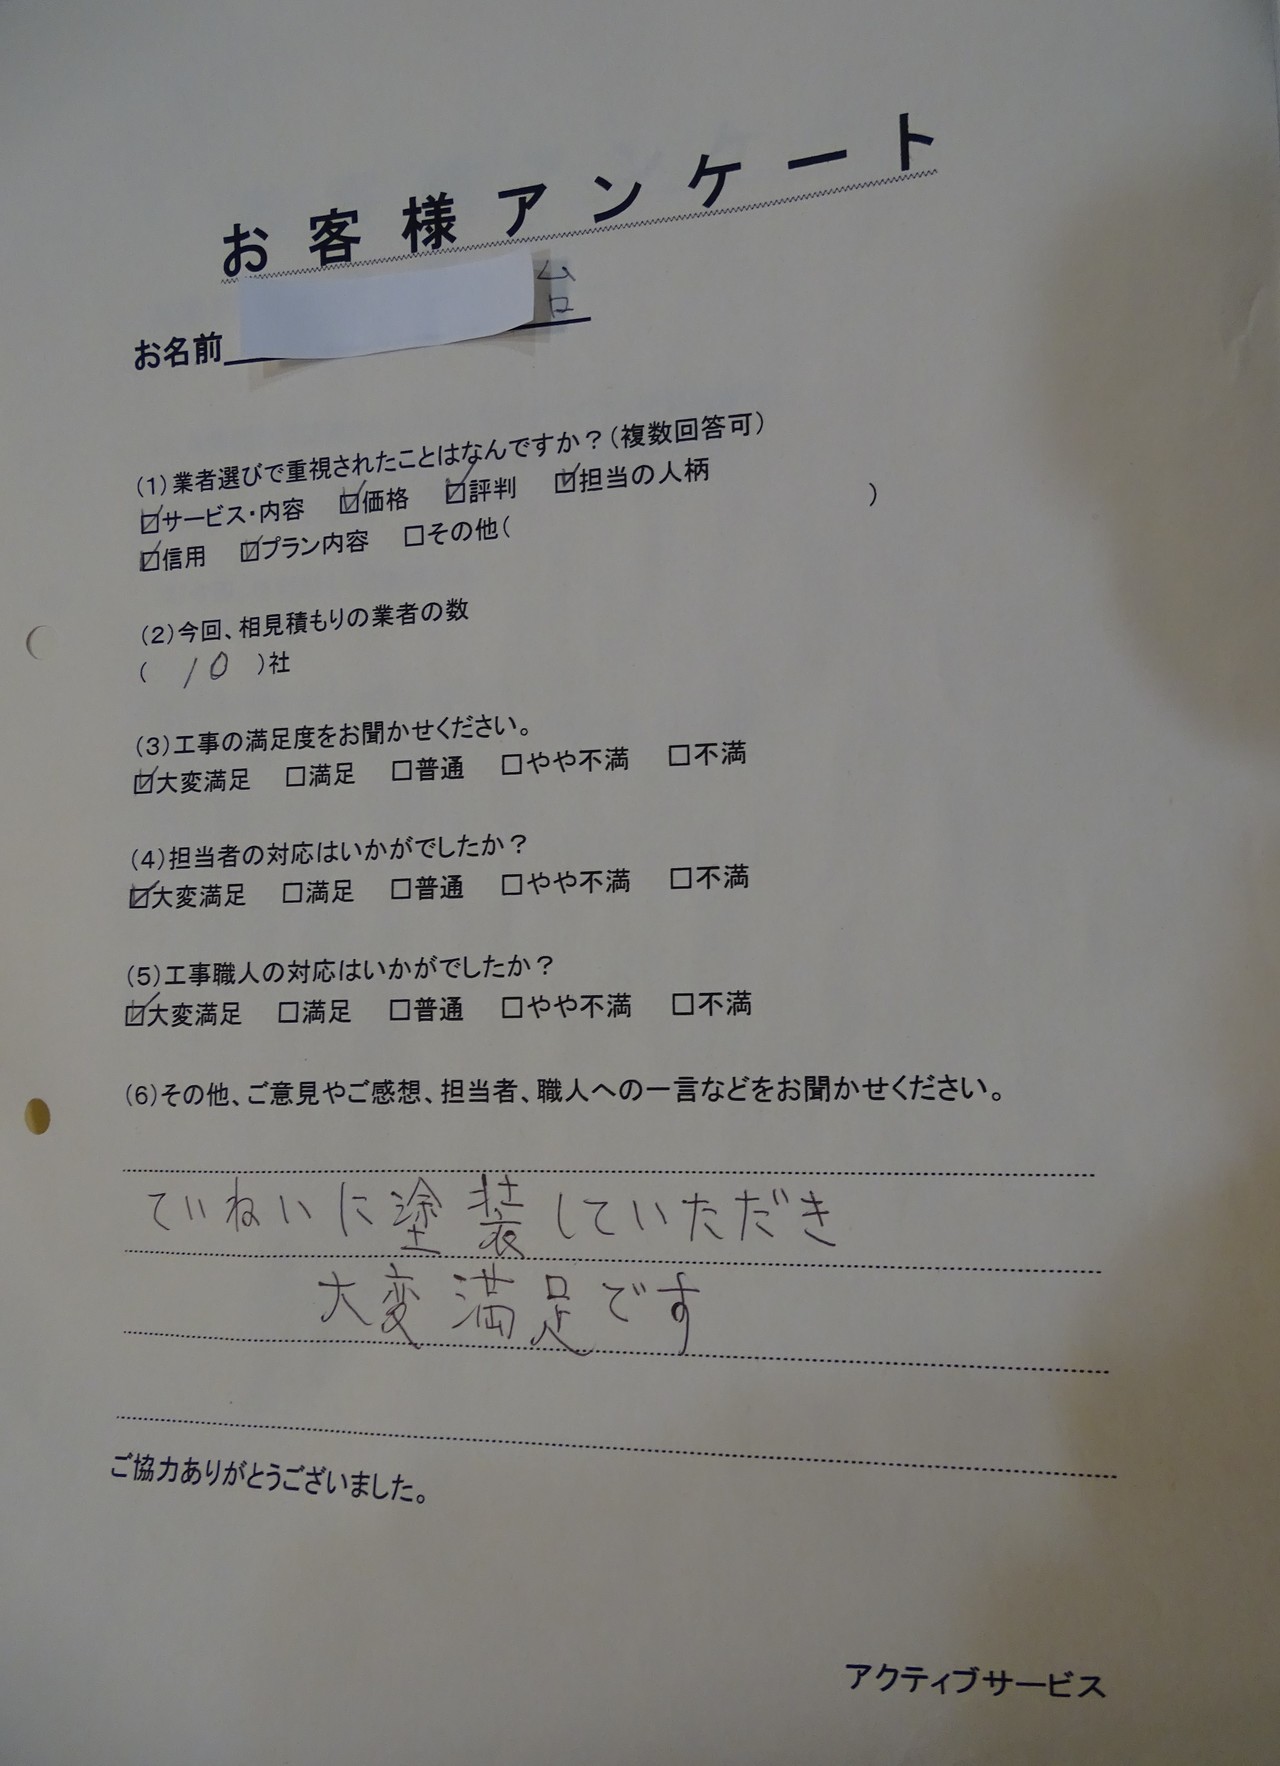 お客様アンケート
お名前
(1)業者選びで重視されたことはなんですか？(複数回答可)
☑サービス・内容 ☑価格 ☑評判 ☑担当の人柄
☑信用 ☑プラン内容 □その他( )
(2)今回、相見積もりの業者の数
( 10 )社
(3)工事の満足度をお聞かせください。
☑大変満足 □満足 □普通 □やや不満 □不満
(4)担当者の対応はいかがでしたか？
☑大変満足 □満足 □普通 □やや不満 □不満
(5)工事職人の対応はいかがでしたか？
☑大変満足 □満足 □普通 □やや不満 □不満
(6)その他、ご意見やご感想、担当者、職人への一言などをお聞かせください。
ていねいに塗装していただき
大変満足です
ご協力ありがとうございました。
アクティブサービス